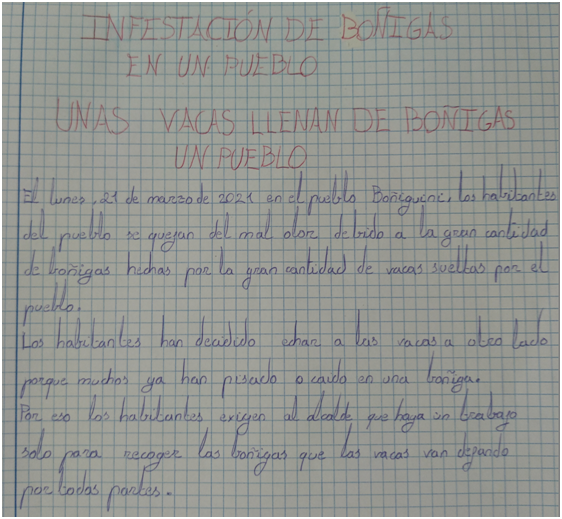 INFESTACIÓN DE BOÑIGAS
EN UN PUEBLO
UNAS VACAS LLENAN DE BOÑIGAS
UN PUEBLO
El lunes, 21 de marzo de 2021 en el pueblo Boñiguini, los habitantes
del pueblo se quejan del mal olor debido a la gran cantidad
de boñigas hechas por la gran cantidad de vacas sueltas por el
pueblo.
Los habitantes han decidido echar a las vacas a otro lado
porque muchos ya han pisado o caido en una boñiga.
Por eso los habitantes exigen al alcalde que haya un trabajo
solo para recoger las boñigas que las vacas van dejando
por todas partes.